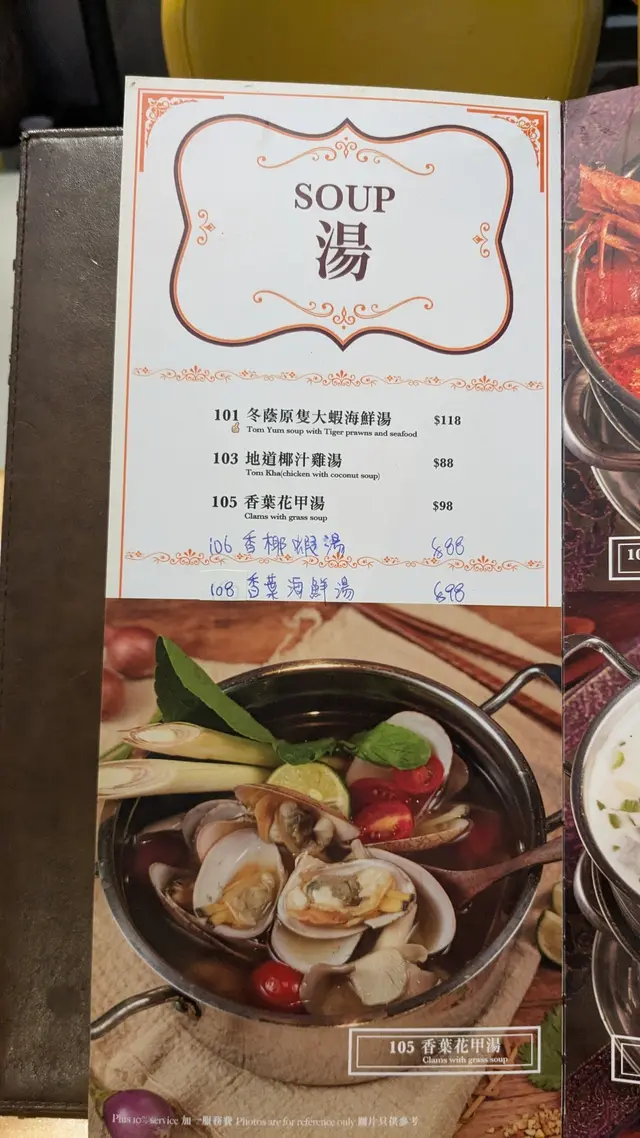 SOUP
湯
101 冬蔭原隻大蝦海鮮湯 $118
Tom Yum soup with Tiger prawns and seafood
103 地道椰汁雞湯 $88
Tom Kha(chicken with coconut soup)
105 香葉花甲湯 $98
Clams with grass soup
106 香椰蝦湯 $88
108 香葉海鮮湯 $98
105 香葉花甲湯
Clams with grass soup
Plus 10% service 加一服務費 Photos are for reference only 圖片只供參考